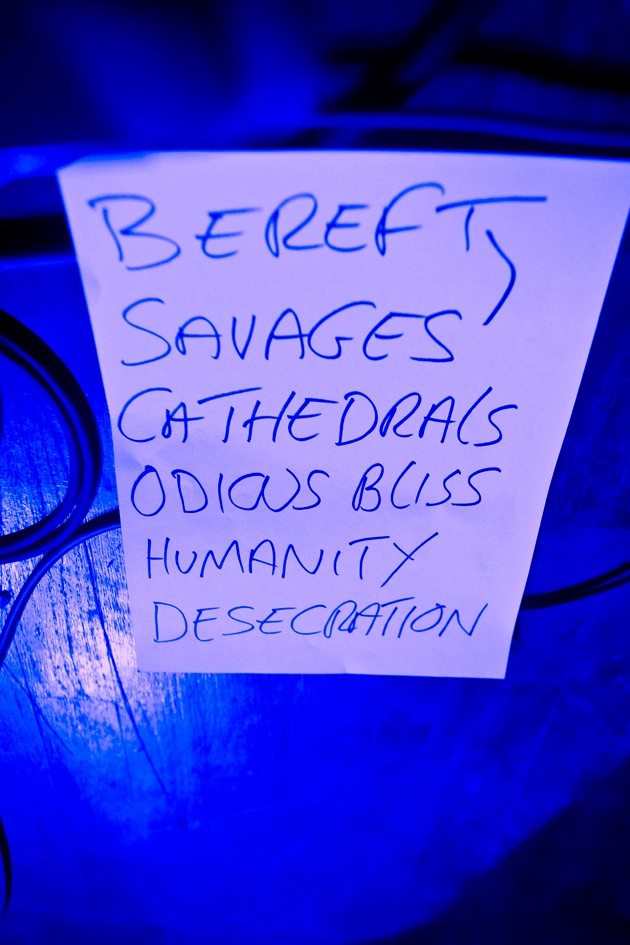 BEREFT,
SAVAGES
CATHEDRALS
ODIOUS BLISS
HUMANITY
DESECRATION